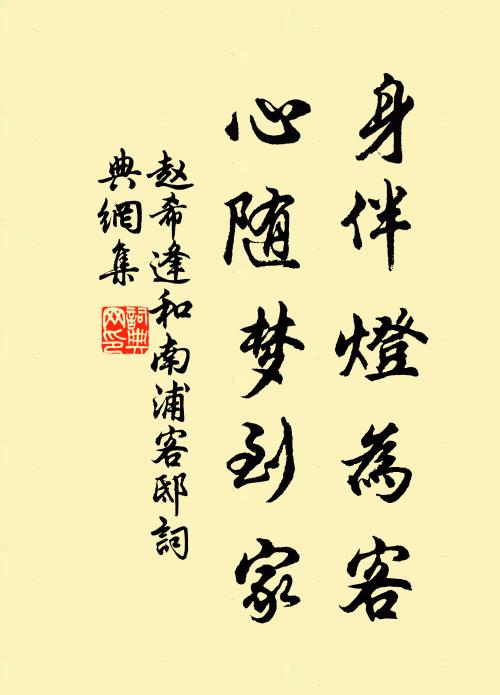 身伴燈為客
心随梦到家
赵希逢和南浦客邸詞
典網集
詞典
网印